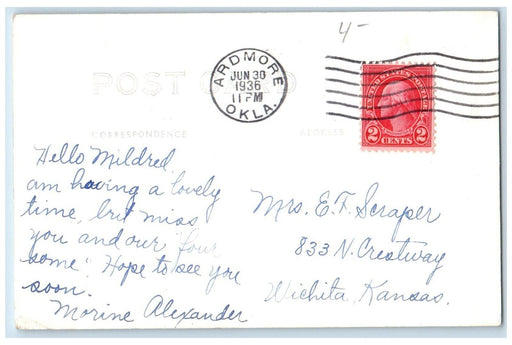 4-
POST CARD
ARDMORE
JUN 30
1936
11 PM
OKLA.
UNITED STATES POSTAGE
2 2
CENTS
CORRESPONDENCE
ADDRESS
Hello Mildred,
am having a lovely
time, but miss
you and our "four
some". Hope to see you
soon.
Morine Alexander
Mrs. E. F. Scraper
833 N. Crestway
Wichita, Kansas.